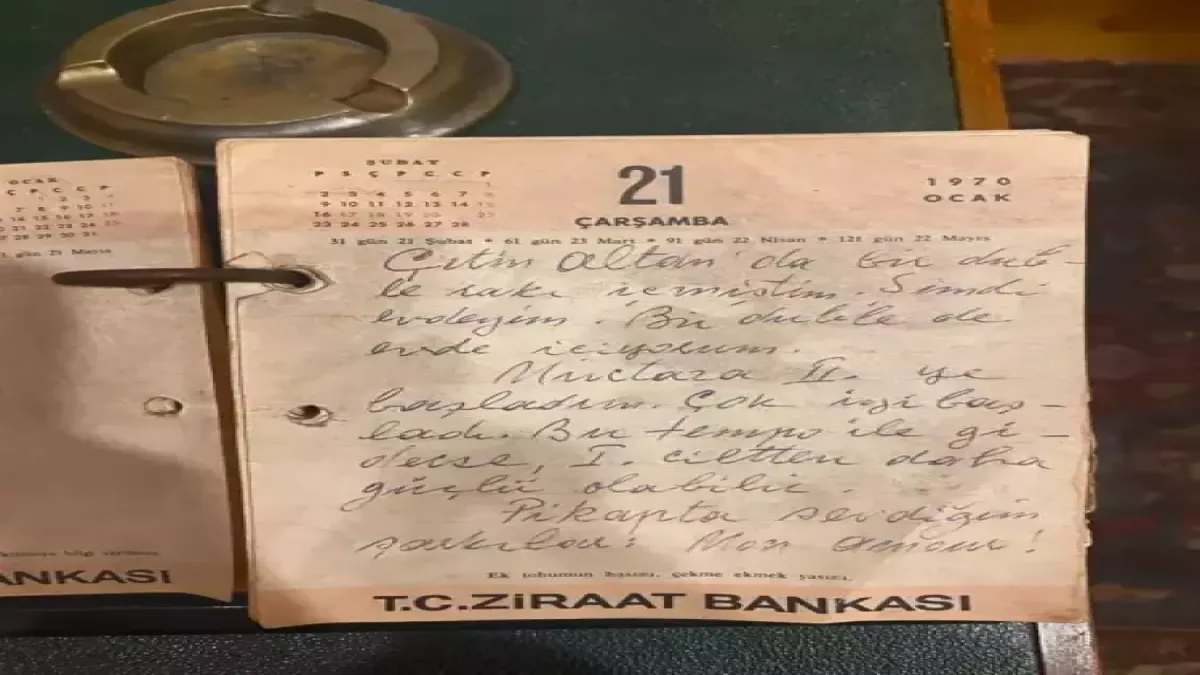 OCAK
Ç P C C P
1 gün 21 Mayıs
ANKASI
ŞUBAT
P S Ç P C C P
1
2 3 4 5 6 7
9 10 11 12 13 14 15
16 17 18 19 20 21 22
23 24 25 26 27 28
21
ÇARŞAMBA
1970
OCAK
31 gün 21 Şubat • 61 gün 23 Mart • 91 gün 22 Nisan • 121 gün 22 Mayıs
Çetin Altan'da bir dub-
le rakı içmiştim. Şimdi
evdeyim. Bir duble de
evde içiyorum.
II. ye
başladım. Çok iyi baş-
ladı. Bu tempo ile gi-
derse, I. ciltten daha
güçlü olabilir.
Pikapta sevdiğim
şarkılar: Mon amour!
Ek tohumun hasını, çekme ekmek yasını.
T.C. ZİRAAT BANKASI